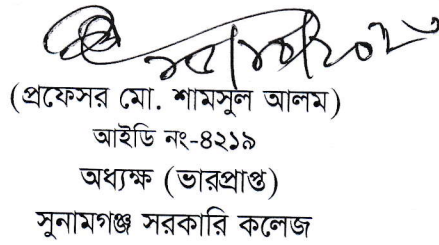 (প্রফেসর মো. শামসুল আলম)
আইডি নং-৪২১৯
অধ্যক্ষ (ভারপ্রাপ্ত)
সুনামগঞ্জ সরকারি কলেজ